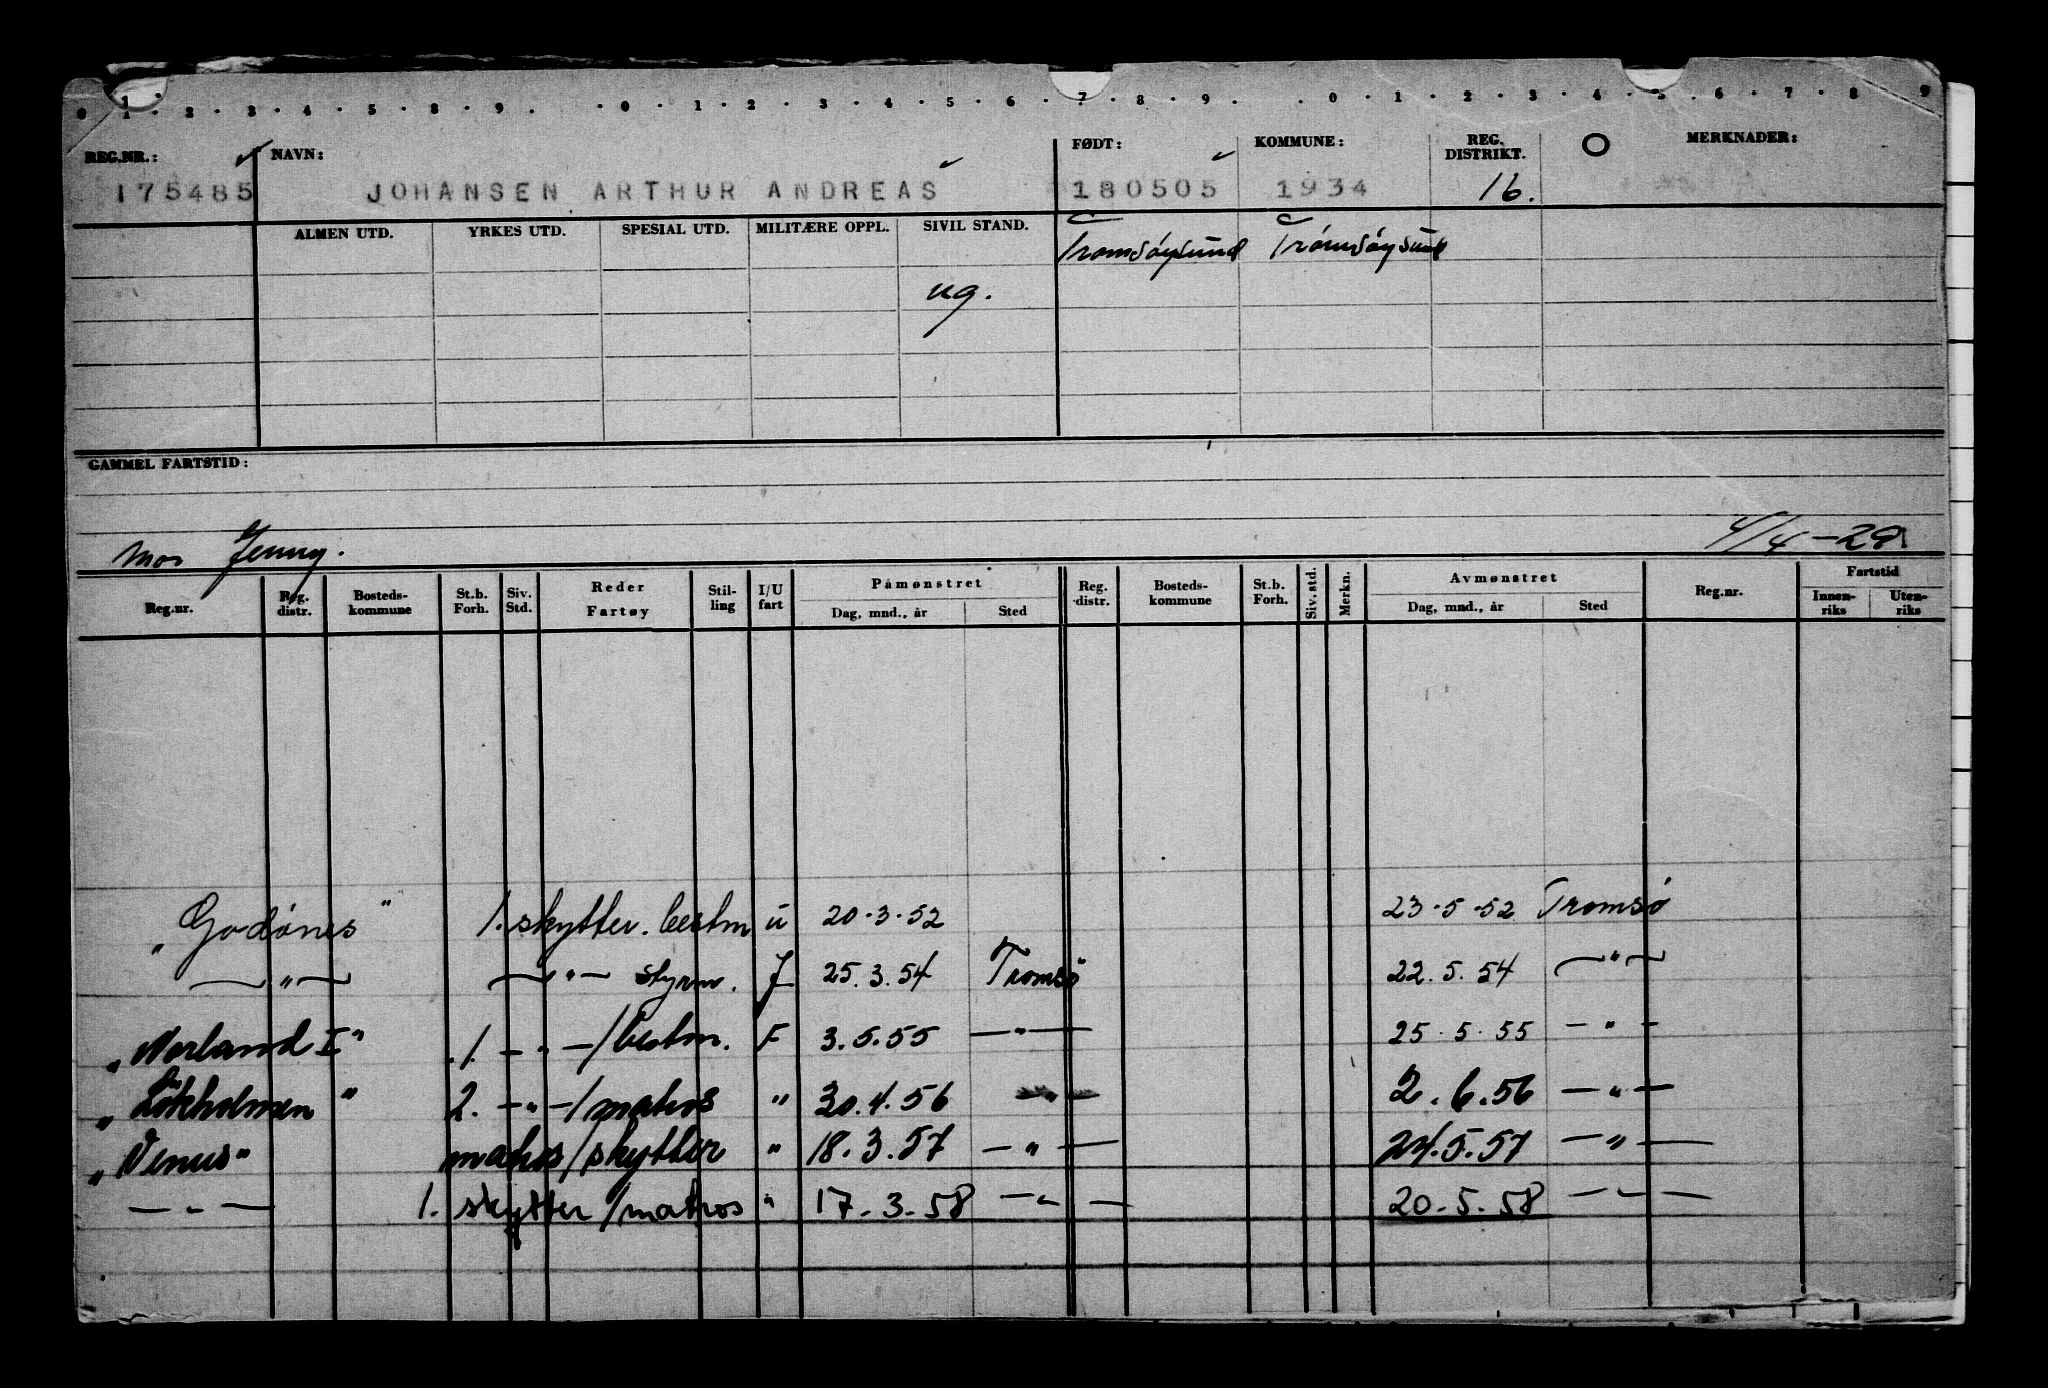 0 1 2 3 4 5 8 9 0 1 2 3 4 5 6 7 8 9 0 1 2 3 4 5 6 7 8 9
REG.NR.: NAVN: FØDT: KOMMUNE: REG. DISTRIKT. MERKNADER:
175485 JOHANSEN ARTHUR ANDREAS 180505 1934 16.
ALMEN UTD. YRKES UTD. SPESIAL UTD. MILITÆRE OPPL. SIVIL STAND. Tromsöysund Tromsöysund
ug.
GAMMEL FARTSTID:
Mor Jenny. 4/4-29
Reg.nr. Reg. distr. Bosteds-kommune St.b. Forh. Siv. Std. Reder Fartøy Stil-ling I/U fart Påmønstret Dag, mnd., år Sted Reg. distr. Bosteds-kommune St.b. Forh. Siv. std. Merkn. Avmønstret Dag, mnd., år Sted Reg.nr. Fartstid Innen-riks Uten-riks
"Godönes" 1. skytter. bestm u 20.3.52 23.5.52 Tromsö
—"— —"— styrm. F 25.3.54 Tromsö 22.5.54 —"—
"Norland I" 1. —"—/bestm. F 3.5.55 —"— 25.5.55 —"—
"Lökholmen" 2. —"—/matros " 30.4.56 —"— 2.6.56 —"—
"Venus" matros/skytter " 18.3.57 —"— 24.5.57 —"—
—"— 1. skytter/matros " 17.3.58 —"— 20.5.58 —"—